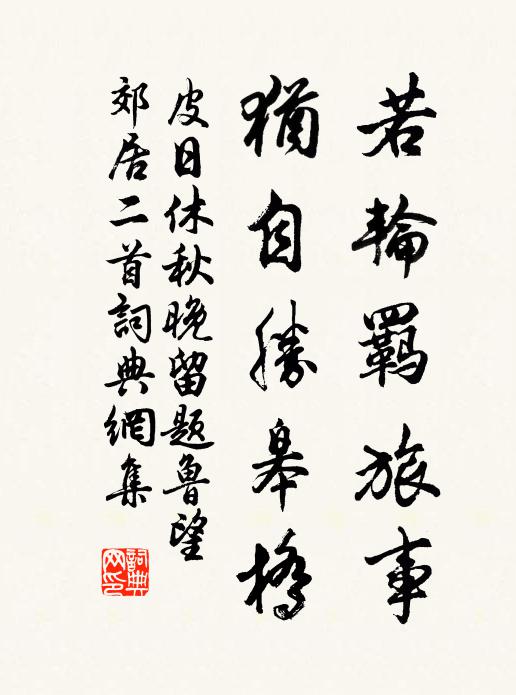 若輪羈旅事
猶自勝皋橋
皮日休秋晚留題魯望
郊居二首詞典網集
詞典
网印